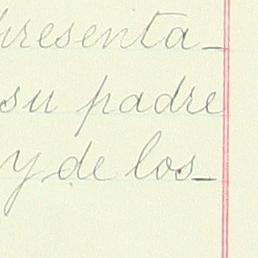 presenta_
su padre
y de los_